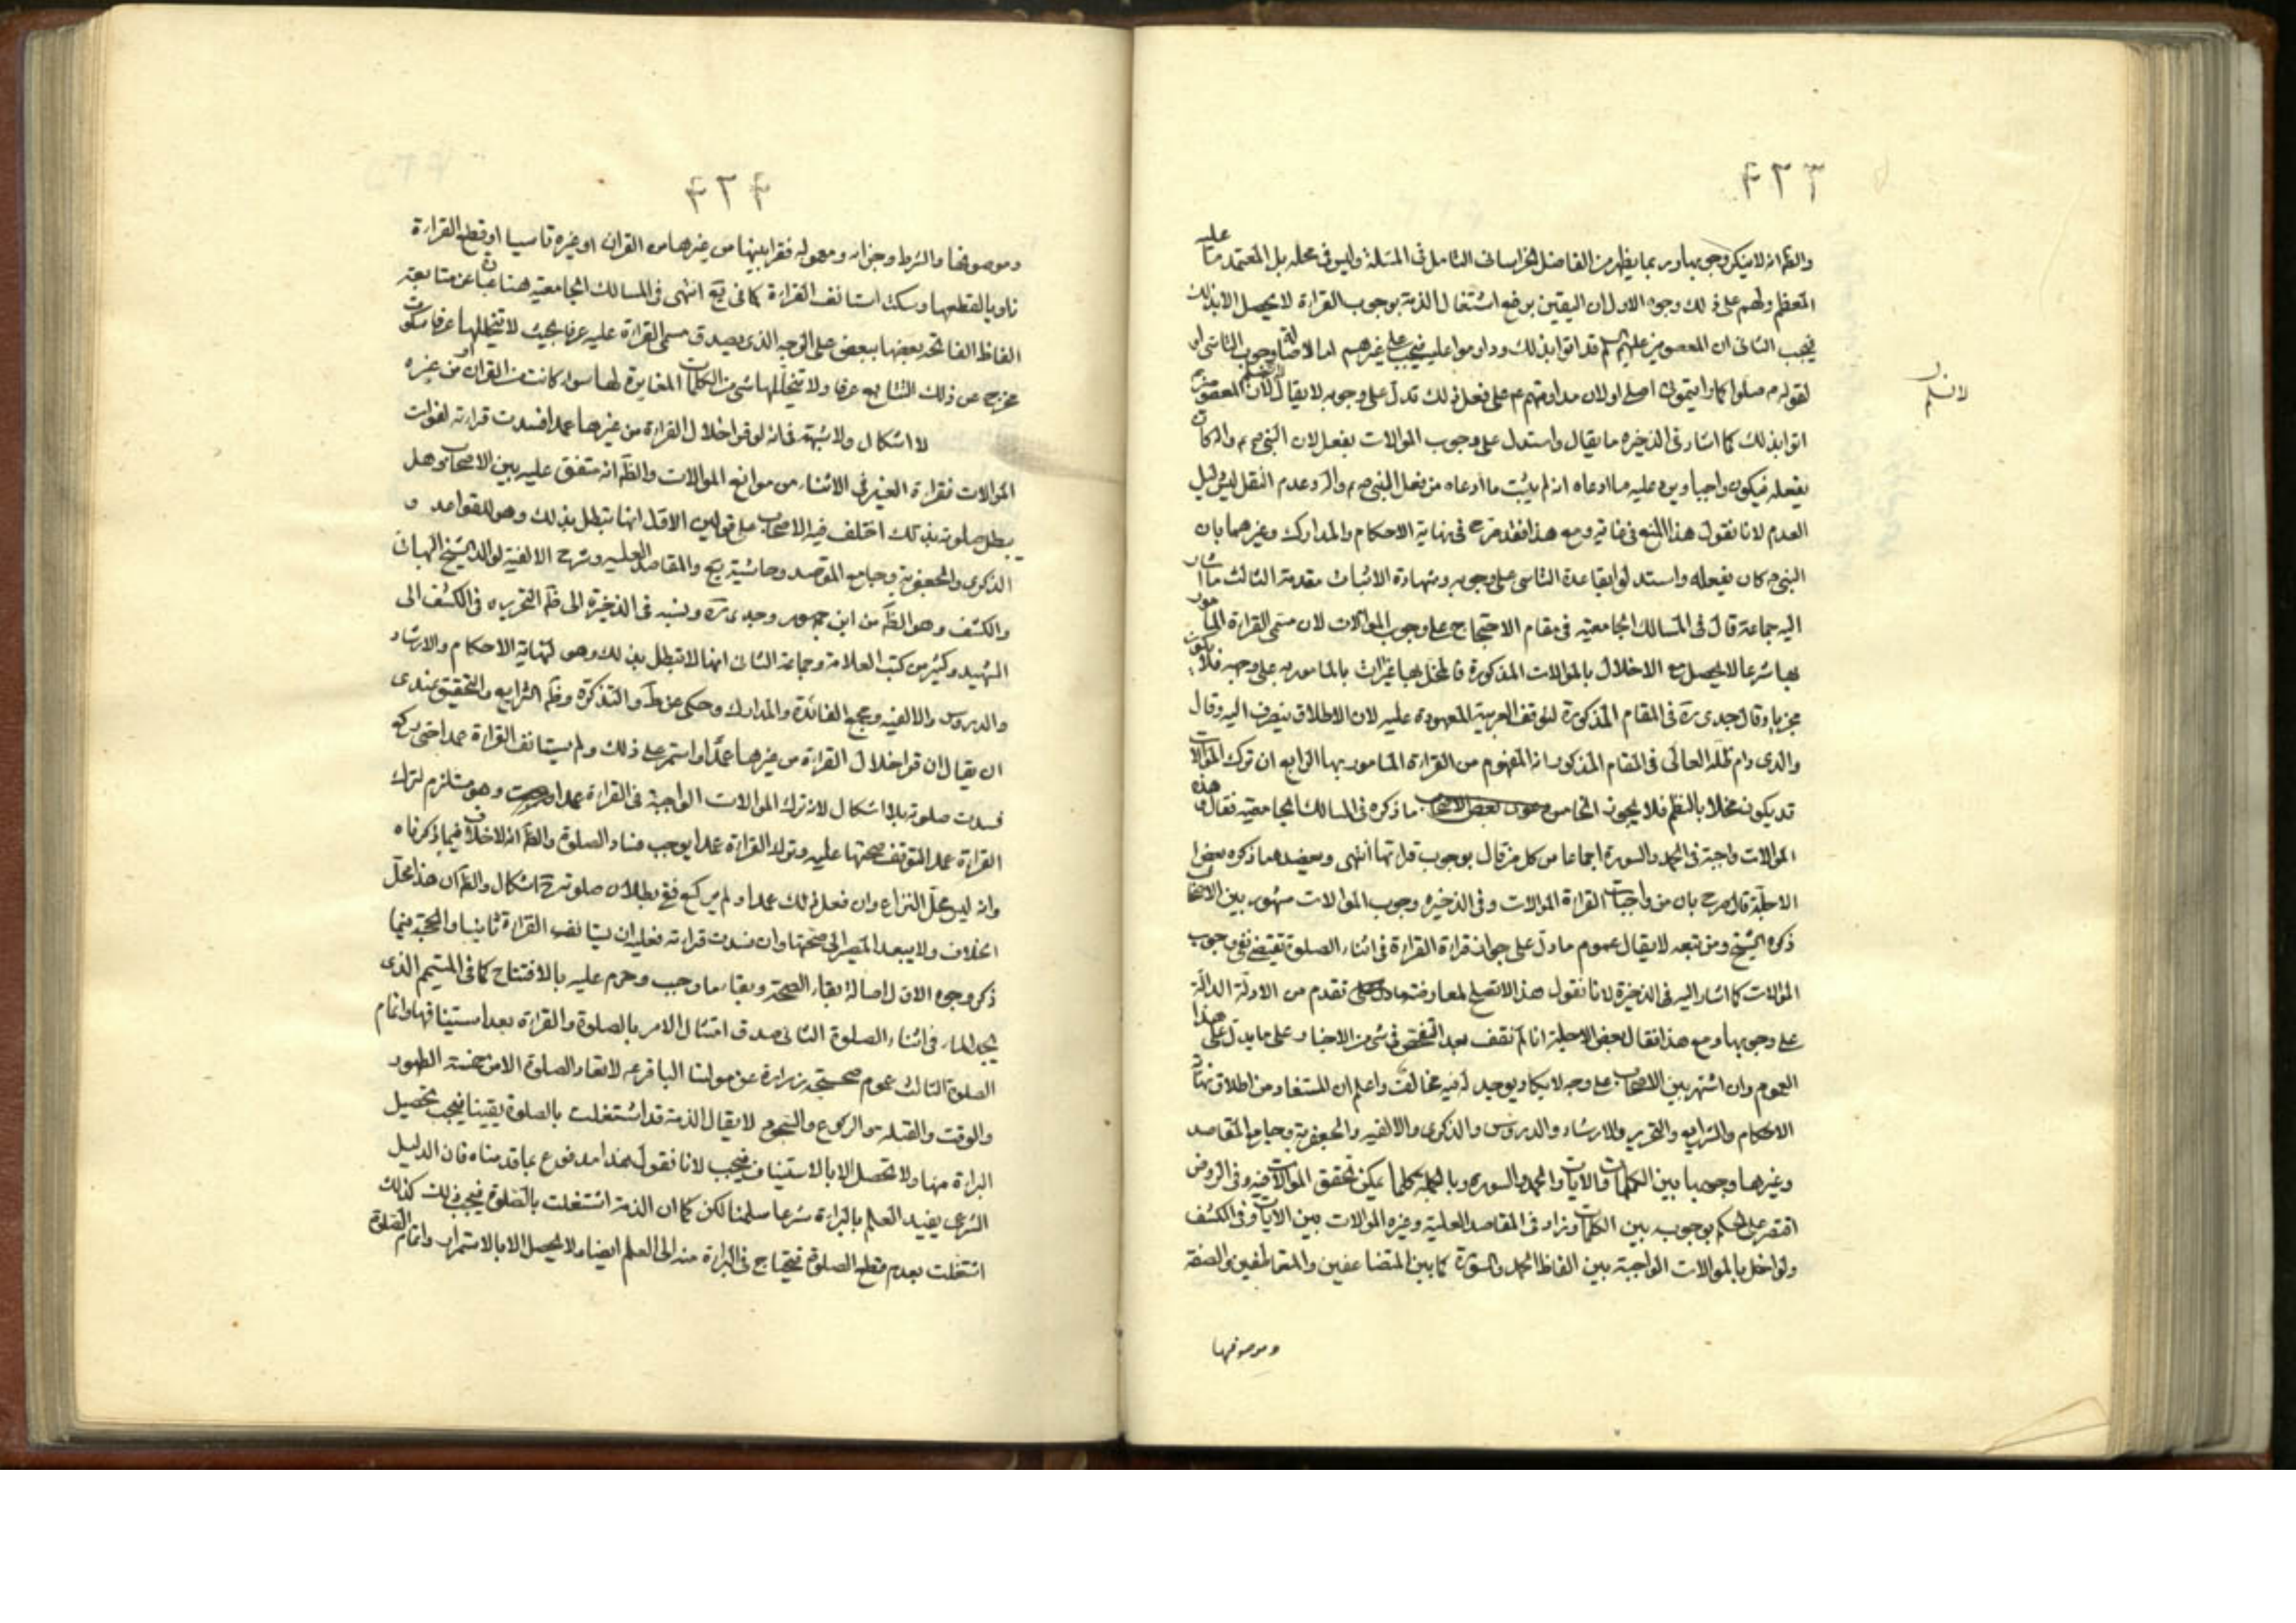 ۴۳۳
والظم انه لا ينكر وجوبها وربما يظهر من الفاضل الخراسانى التامل فى المسئلة وليس فى محله بل المعتمد ما عليه
المعظم ولهم على ذلك وجوه الاول ان اليقين برفع اشتغال الذمة بوجوب القرائة لا يحصل الا بذلك
فيجب الثانى ان المعصومين عليهم السلم قد اتوا بذلك وداوموا عليه فيجب على غيرهم اما لاصالة وجوب التاسى او
لقوله م صلوا كما رايتمونى اصلى او لان مداومتهم عم على فعل ذلك تدل على وجوبه لا يقال لا نسلم ان المعصومين
لا نسلم
اتوا بذلك كما اشار فى الذخيره ما يقال واستدل على وجوب الموالات بفعل لان النبى ص م واله كان
يفعله فيكون واجبا ويرد عليه ما ادعاه انه لم يثبت ما ادعاه من فعل النبى ص م واله وعدم النقل ليس دليل
العدم لانا نقول هذا المنع فى غايه ومع هذا فقد صرح فى نهاية الاحكام والمدارك وغيرهما بان
النبى ص كان يفعله واستدلوا بقاعدة التاسى على وجوبه وشهادة الاثبات مقدمة الثالث ما اشار
اليه جماعة قال فى المسالك الجامعية فى مقام الاحتجاج على وجوب الموالات لان مسمى القرائة المامور
بها شرعا لا يحصل مع الاخلال بالموالات المذكورة فالمخل بها غير ات بالمامور به على وجهه فلا يكون
مجزيا وقال جدى ره فى المقام المذكورة لتوقف العربية المعهودة عليه لان الاطلاق ينصرف اليه وقال
والدى دام ظله العالى فى المقام المذكور انه المفهوم من القرائة المامور بها الرابع ان ترك الموالات
قد يكون مخلا بالنظم فلا يجوز الخامس ما ذكره فى المسالك الجامعيه فقال هذه
الموالات واجبة فى الحمد والسورة اجماعا من كل من قال بوجوب قرائتها انتهى ويعضد هما ذكره بعض
الاجلة قال صرح بان من واجبات القرائة الموالات وفى الذخيره وجوب الموالات مشهور بين الاصحاب
ذكره الشيخ ومن تبعه لا يقال عموم ما دل على جواز قرائة القرائة فى اثناء الصلوة تقتضى نفى وجوب
الموالات كما اشار اليه فى الذخيرة لانا نقول هذا لا تصلح لمعارضة ما تقدم من الادلة الدالة
على وجوبها ومع هذا فقال بعض الاجلة انا لم نقف بعد التفحص فى شئ من الاخبار على ما يدل على هذا
العموم وان اشتهر بين الاصحاب على وجه لا يكاد يوجد له فيه مخالف واعلم ان المستفاد من اطلاق نهاية
الاحكام والشرايع والتحرير والارشاد والدروس والذكرى والالفيه والجعفرية وجامع المقاصد
وغيرها وجوبها بين الكلمات والايات والحمد والسوره وبالجملة كلما يمكن تحقق الموالات فيه وفى الروض
اقتصر على الحكم بوجوبه بين الكلمات وزاد فى المقاصد العلية وغيره الموالات بين الايات وفى الكشف
ولو اخل بالموالات الواجبة بين الفاظ الحمد والسورة كما بين المتضايفين والمتعاطفين والصفة
وموصوفها
۴۳۴
وموصوفها والشرط وجزائه ومعموله فقرا بينها من غيرها من القران او غيره ناسيا او قطع القرائة
ناويا لقطعها وسكت استانف القرائة كما فى يع انتهى فى المسالك الجامعيه هنا عبارة عن متابعة
الفاظ الفاتحه بعضها ببعض على الوجه الذى يصدق مسمى القرائة عليه عرفا بحيث لا يتخللها عرفا سكوت
مخرج عن ذلك التتابع عرفا ولا يتخللها شئ من الكلمات المغايرة لها سواء كانت من القران او من غيره
لا اشكال ولا شبهة فى انه لو قرا خلال القرائة من غيرها عمدا فسدت قرائته لفوات
الموالات فقرائة الغير فى الاثناء من موانع الموالات والظم انه متفق عليه بين الاصحاب وهل
يبطل صلوته بذلك اختلف فيه الاصحاب على قولين الاول انها تبطل بذلك وهو للقواعد و
الذكرى والجعفرية وجامع المقاصد وحاشية يع والمقاصد العليه وشرح الالفية لوالد الشيخ البهائ
والكشف وهو الظم من ابن جمهور وجدى ره ونسبه فى الذخيرة الى ظم التحرير ه فى الكشف الى
الشهيد وكثير من كتب العلامة وجماعة الثانى انها لا تبطل بذلك وهو لنهاية الاحكام والارشاد
والدروس والالفيه ومجمع الفائدة والمدارك وحكى عن ط والتذكرة وظم الشرايع والتحقيق عندى
ان يقال ان قرا خلال القرائة من غيرها عمدا واستمر على ذلك ولم يستانف القرائة عمدا حتى يركع
فسدت صلوته بلا اشكال لانه ترك الموالات الواجبة فى القرائة عمدا وهو مستلزم لترك
القرائة عمدا لتوقف صحتها عليه وترك القرائة عمدا يوجب فساد الصلوة والظم انه لا خلاف فيما ذكرناه
وانه ليس محل النزاع وان فعل ذلك عمدا ولم يركع ففى بطلان صلوته ح اشكال والظم ان هذا محل
الخلاف ولا يبعد المصير الى صحتها وان فسدت قرائته فعليه ان يستانف القرائة ثانيا والحجة فيما
ذكر وجوه الاول اصالة بقاء الصحة وبقاء ما وجب وحرم عليه بالافتتاح كما فى المتيمم الذى
يجد الماء فى اثناء الصلوة الثانى صدق امتثال الامر بالصلوة والقرائة بعد استينافها واتمام
الصلوة الثالث عموم صحيحة زرارة عن مولنا الباقر عم لا تعاد الصلوة الا من خمسة الطهور
والوقت والقبلة والركوع والسجود لا يقال الذمة قد اشتغلت بالصلوة يقينا فيجب تحصيل
البرائة منها ولا تحصل الا بالاستيناف فيجب لانا نقول هذا مدفوع بما قدمناه فان الدليل
الشرعى يفيد العلم بالبرائة شرعا سلمنا لكن كما ان الذمة اشتغلت بالصلوة فيجب ذلك كذلك
اشتغلت بعدم قطع الصلوة فيحتاج فى البرائة منه الى العلم ايضا ولا يحصل الا بالاستمرار واتمام الصلوة